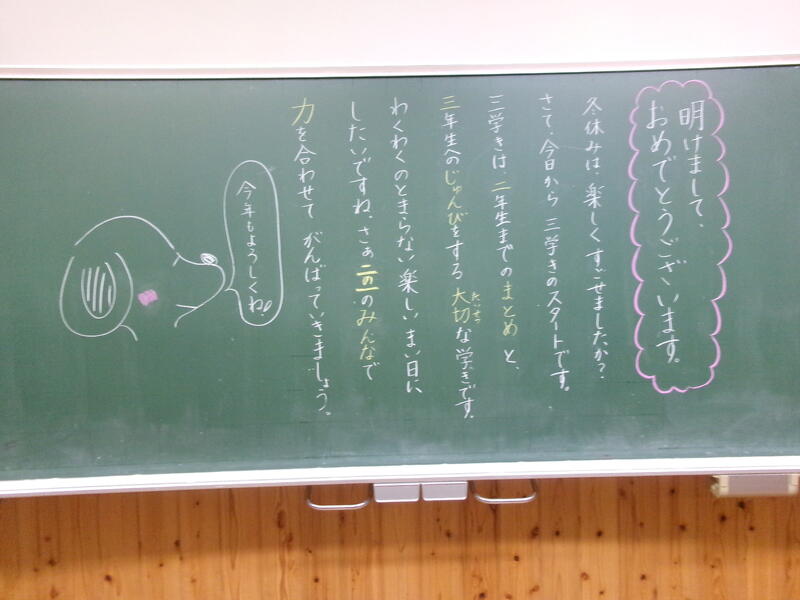 明けまして、
おめでとうございます。
冬休みは、楽しくすごせましたか？
さて、今日から 三学きのスタートです。
三学きは、二年生までのまとめと、
三年生へのじゅんびをする大切な学きです。
たいせつ
わくわくのとまらない楽しいまい日に
したいですね。さぁ二の一のみんなで
力を合わせて がんばっていきましょう。
今年もようしくね!